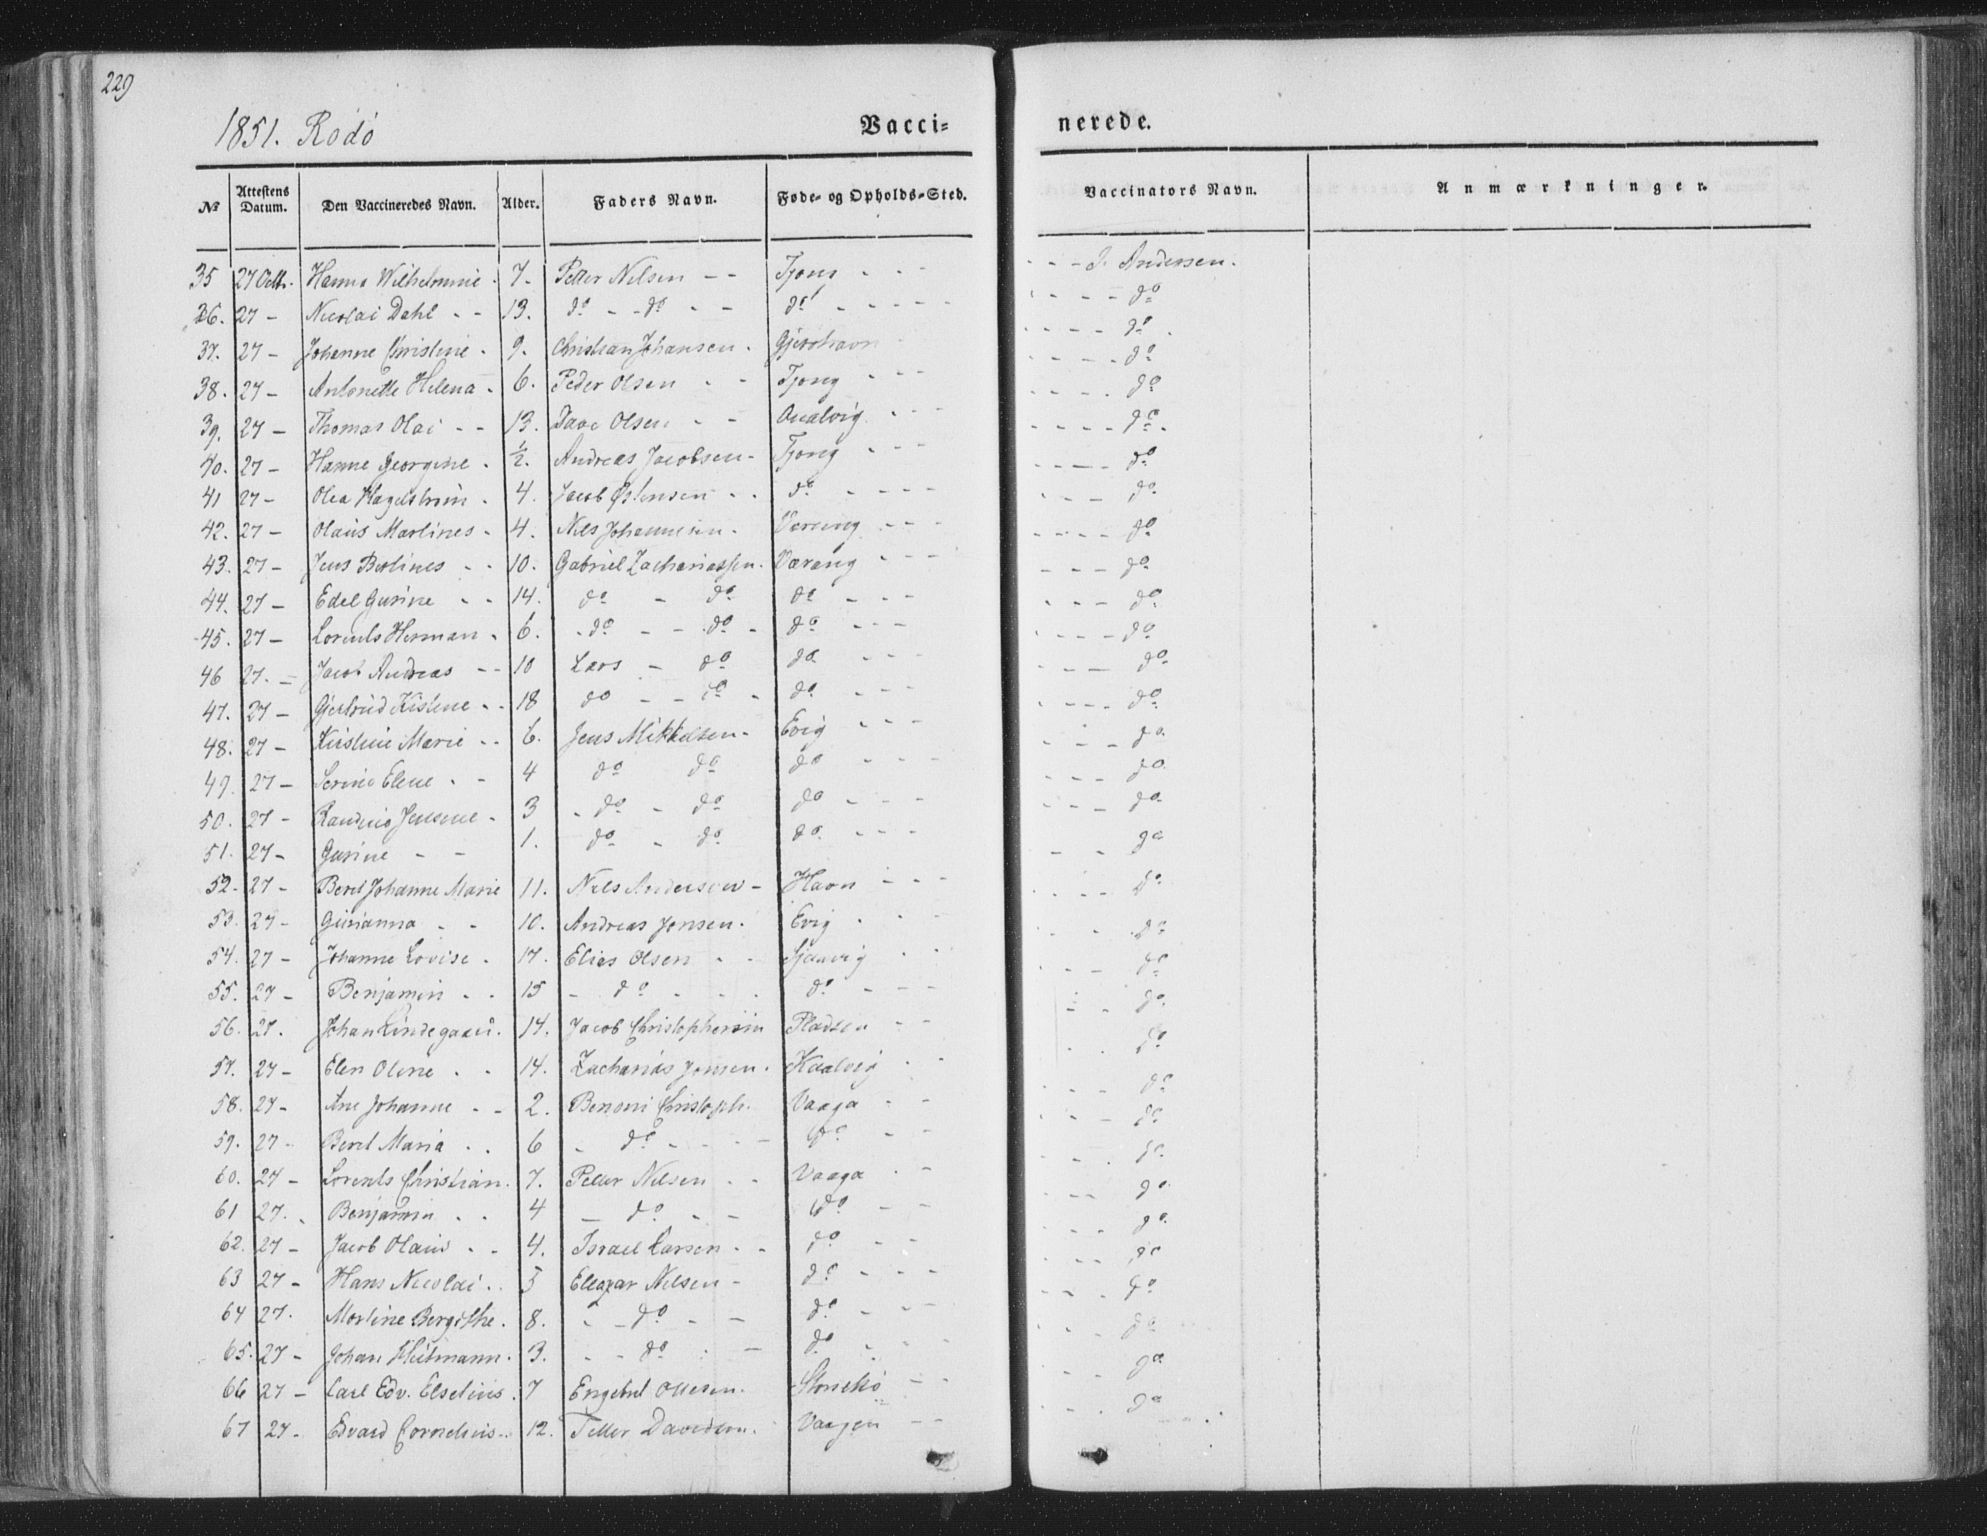 229
1851. Rödö
Vacci- nerede.
№ Attestens Datum. Den Vaccineredes Navn. Alder. Faders Navn. Føde- og Opholds-Sted. Vaccinators Navn. Anmærkninger.
35 27 Octb. Hanna Wilhelmine 7. Petter Nilsen Tjong J. Andersen.
36. 27 Nicolai Dahl 13. do do do do
37. 27 Johanne Christine 9. Christian Johansen do
38. 27 Antonette Helena 6. Peder Olsen Tjong do
39. 27 Thomas Olai 13. Olsen do
40. 27 Hanne Georgine ½. Andreas Jacobsen Tjong do
41 27 Olea Hagelstrøm 4. Jacob Østensen do do
42. 27 Olaus Martines 4. Nils Johannesen do
43. 27 Jens Berlines 10. Gabriel Zachariassen Værang do
44. 27 Edel Gurine 14. do do do do
45. 27 Lorents Herman 6. do do do do
46 27. Jacob Andreas 10 Lars do do do
47. 27 Gjertrud Kistine 18 do do do do
48. 27 Kistine Marie 6. Jens Mikkelsen Evig do
49. 27 Serine Elene 4 do do do do
50. 27 Jensine 3 do do do do
51. 27 Gurine 1. do do do do
52. 27 Beret Johanne Marie 11. Nils Andersen Havn do
53. 27 Gurianna 10. Andreas Jonsen Evig do
54. 27 Johanne Lovise 17. Elias Olsen do
55. 27 Benjamin 15 do do do
56. 27. Johan Lindegaard 14. Jacob Christophersen Pladsen do
57. 27 Elen Oline 14. Zacharias Jonsen do
58. 27 Ane Johanne 2. Benoni Christoph. Vaaga do
59. 27 Beret Maria 6 do do do
60. 27 Lorents Christian 7. Petter Nilsen Vaaga do
61 27. Benjamin 4 do do do
62. 27 Jacob Olaus 4. Israel Larsen do do
63 27 Hans Nicolai 5 Eleazar Nilsen do do
64 27. Martine Bergithe 8. do do do
65. 27 Johan Heitmann 3. do do do
66 27 Carl Edv. Elselius 7 Engebret Ollesen do
67 27 Edvard Cornelius 12. Davidsen Vaagen do